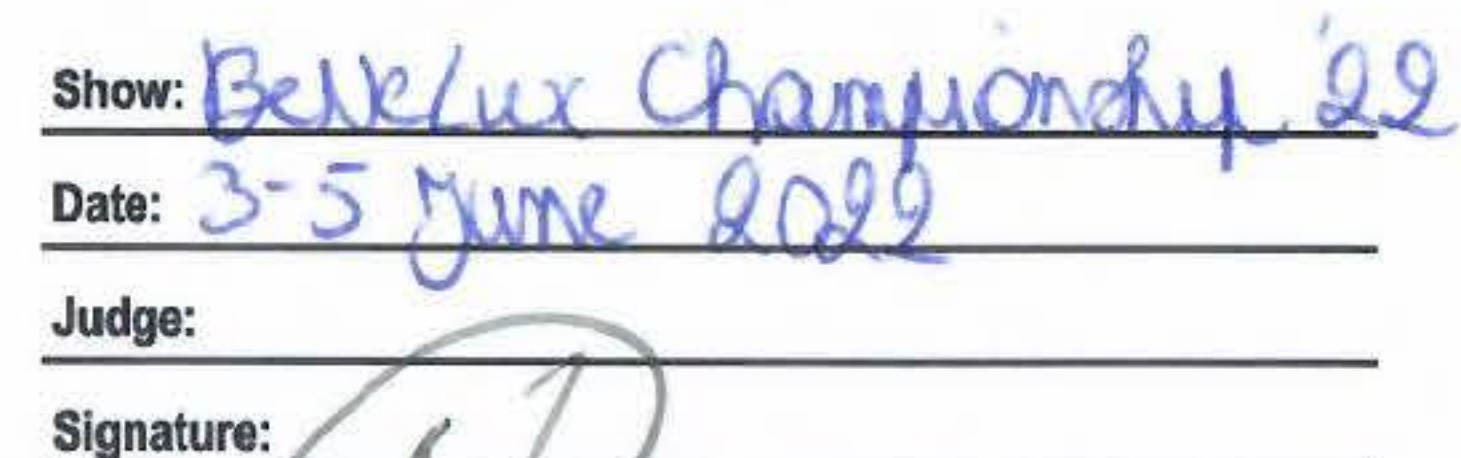 Show: BeNeLux Championship '22
Date: 3-5 June 2022
Judge:
Signature: